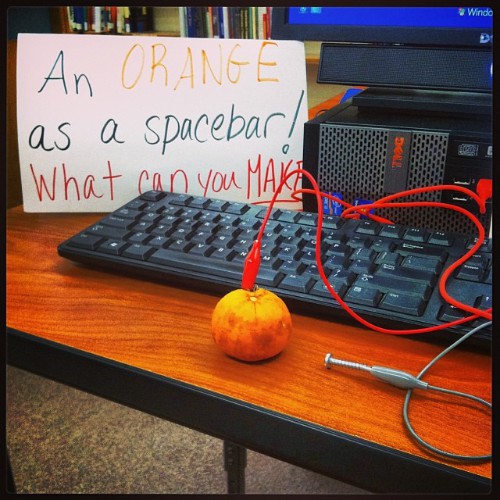 An ORANGE
as a spacebar!
What can you MAKE
Windo
DELL